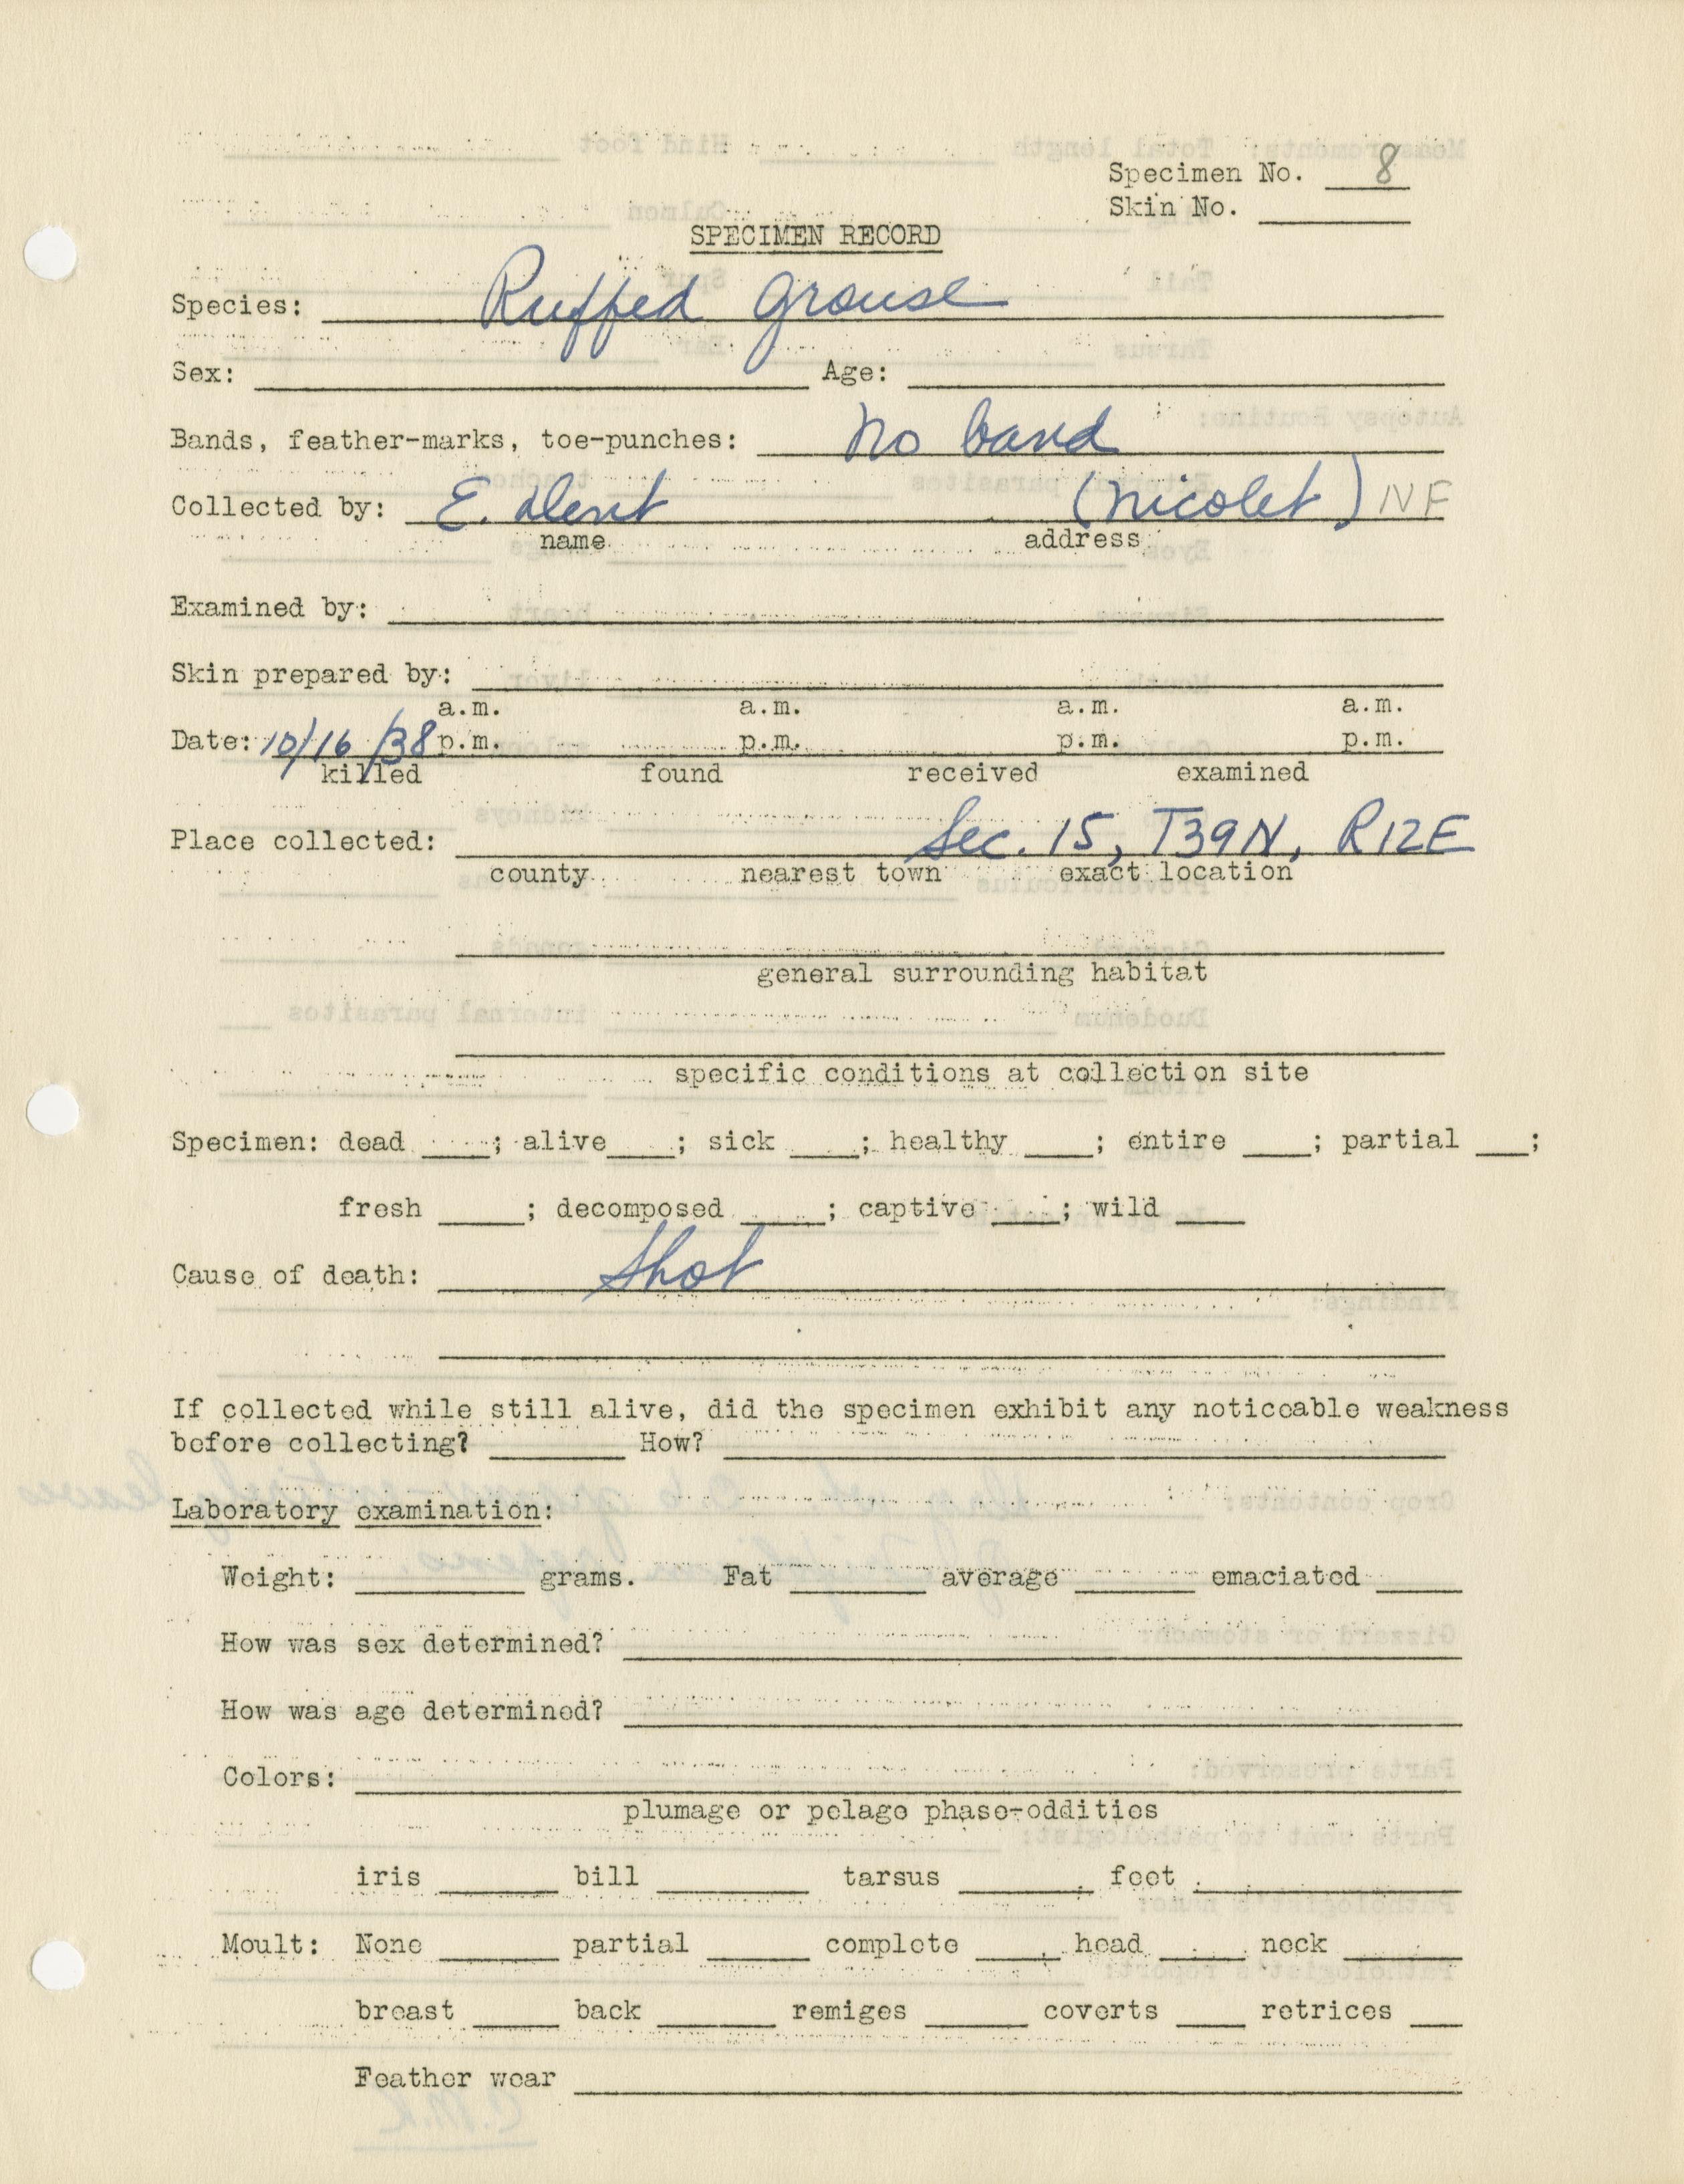 Specimen No. 8
Skin No. ____
SPECIMEN RECORD
Species: Ruffed grouse
Sex: ____ Age: ____
Bands, feather-marks, toe-punches: no band
Collected by: E. Dent (Nicolet) NF
name address
Examined by: ____
Skin prepared by: ____
a.m. a.m. a.m. a.m.
Date: 10/16/38 p.m. p.m. p.m. p.m.
killed found received examined
Place collected: Sec. 15, T39N, R12E
county nearest town exact location
general surrounding habitat
specific conditions at collection site
Specimen: dead ____; alive ____; sick ____; healthy ____; entire ____; partial ___;
fresh ____; decomposed ____; captive ____; wild ____
Cause of death: Shot
If collected while still alive, did the specimen exhibit any noticeable weakness
before collecting? ____ How? ____
Laboratory examination:
Weight: ____ grams. Fat ____ average ____ emaciated ____
How was sex determined? ____
How was age determined? ____
Colors: ____
plumage or pelage phase-oddities
iris ____ bill ____ tarsus ____ feet ____
Moult: None ____ partial ____ complete ____ head ____ neck ____
breast ____ back ____ remiges ____ coverts ____ retrices ____
Feather wear ____